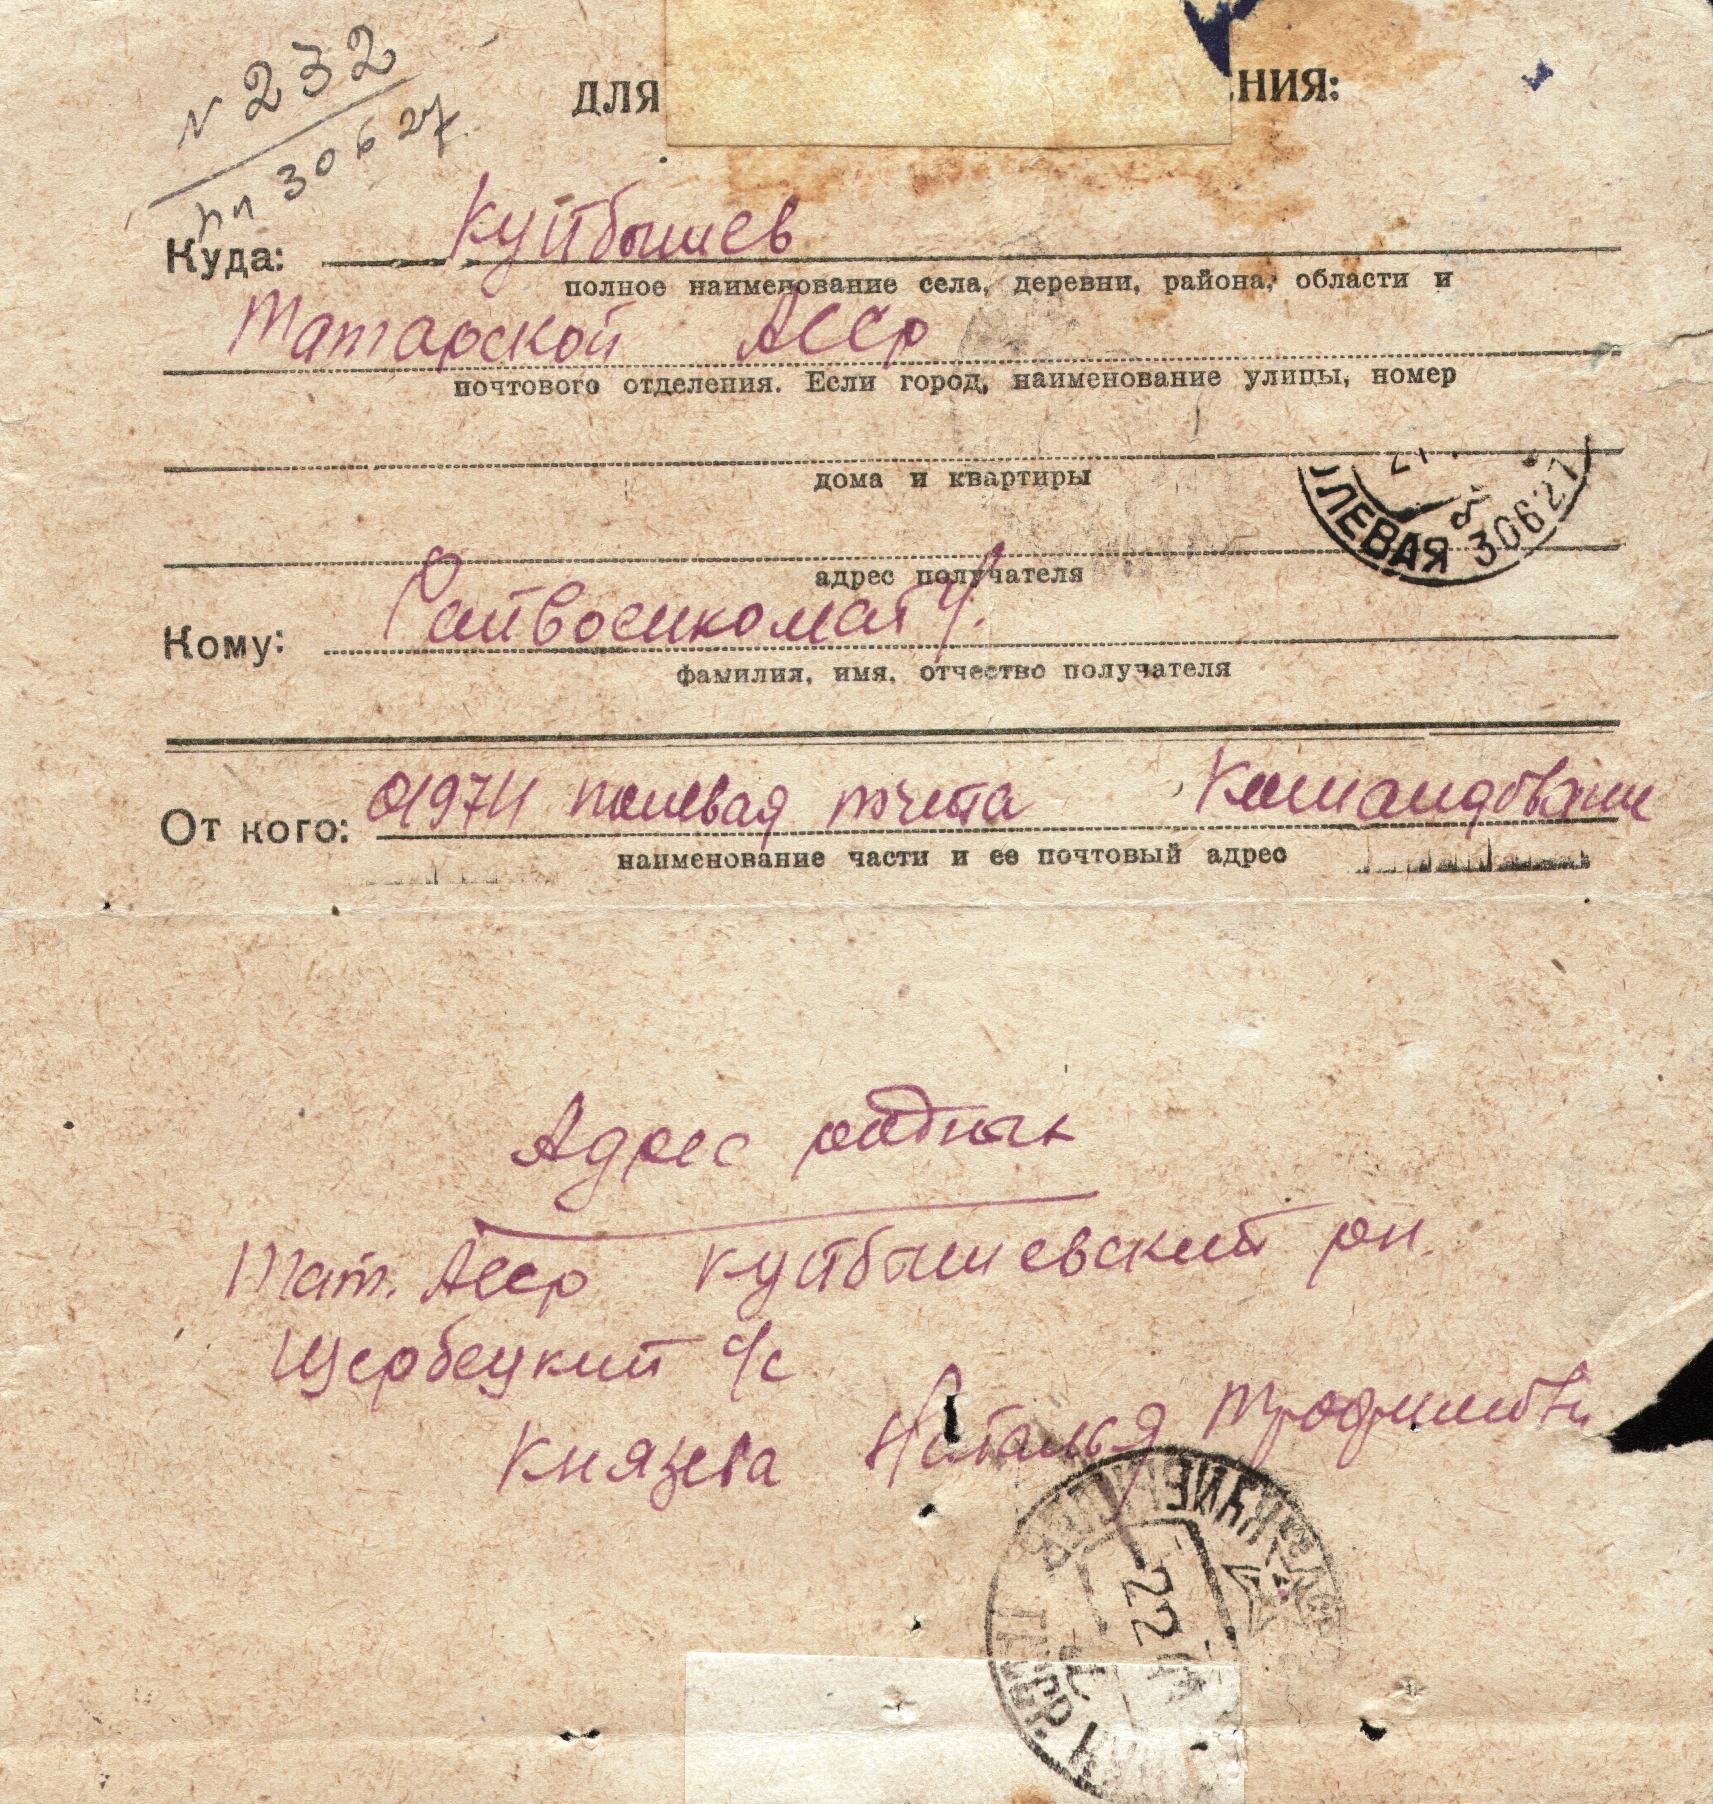 N 232
пп 30627
ДЛЯ НИЯ:
Куда: Куйбышев
полное наименование села, деревни, района, области и
Татарской АССР
почтового отделения. Если город, наименование улицы, номер
дома и квартиры
адрес получателя
ЛЕВАЯ 30627
Кому: Райвоенкомату.
фамилия, имя, отчество получателя
От кого: полевая почта Командование
наименование части и ее почтовый адрес
Адрес родных
Тат. АССР Куйбышевский рн.
Щербецкий с/с
Князева Наталья
22